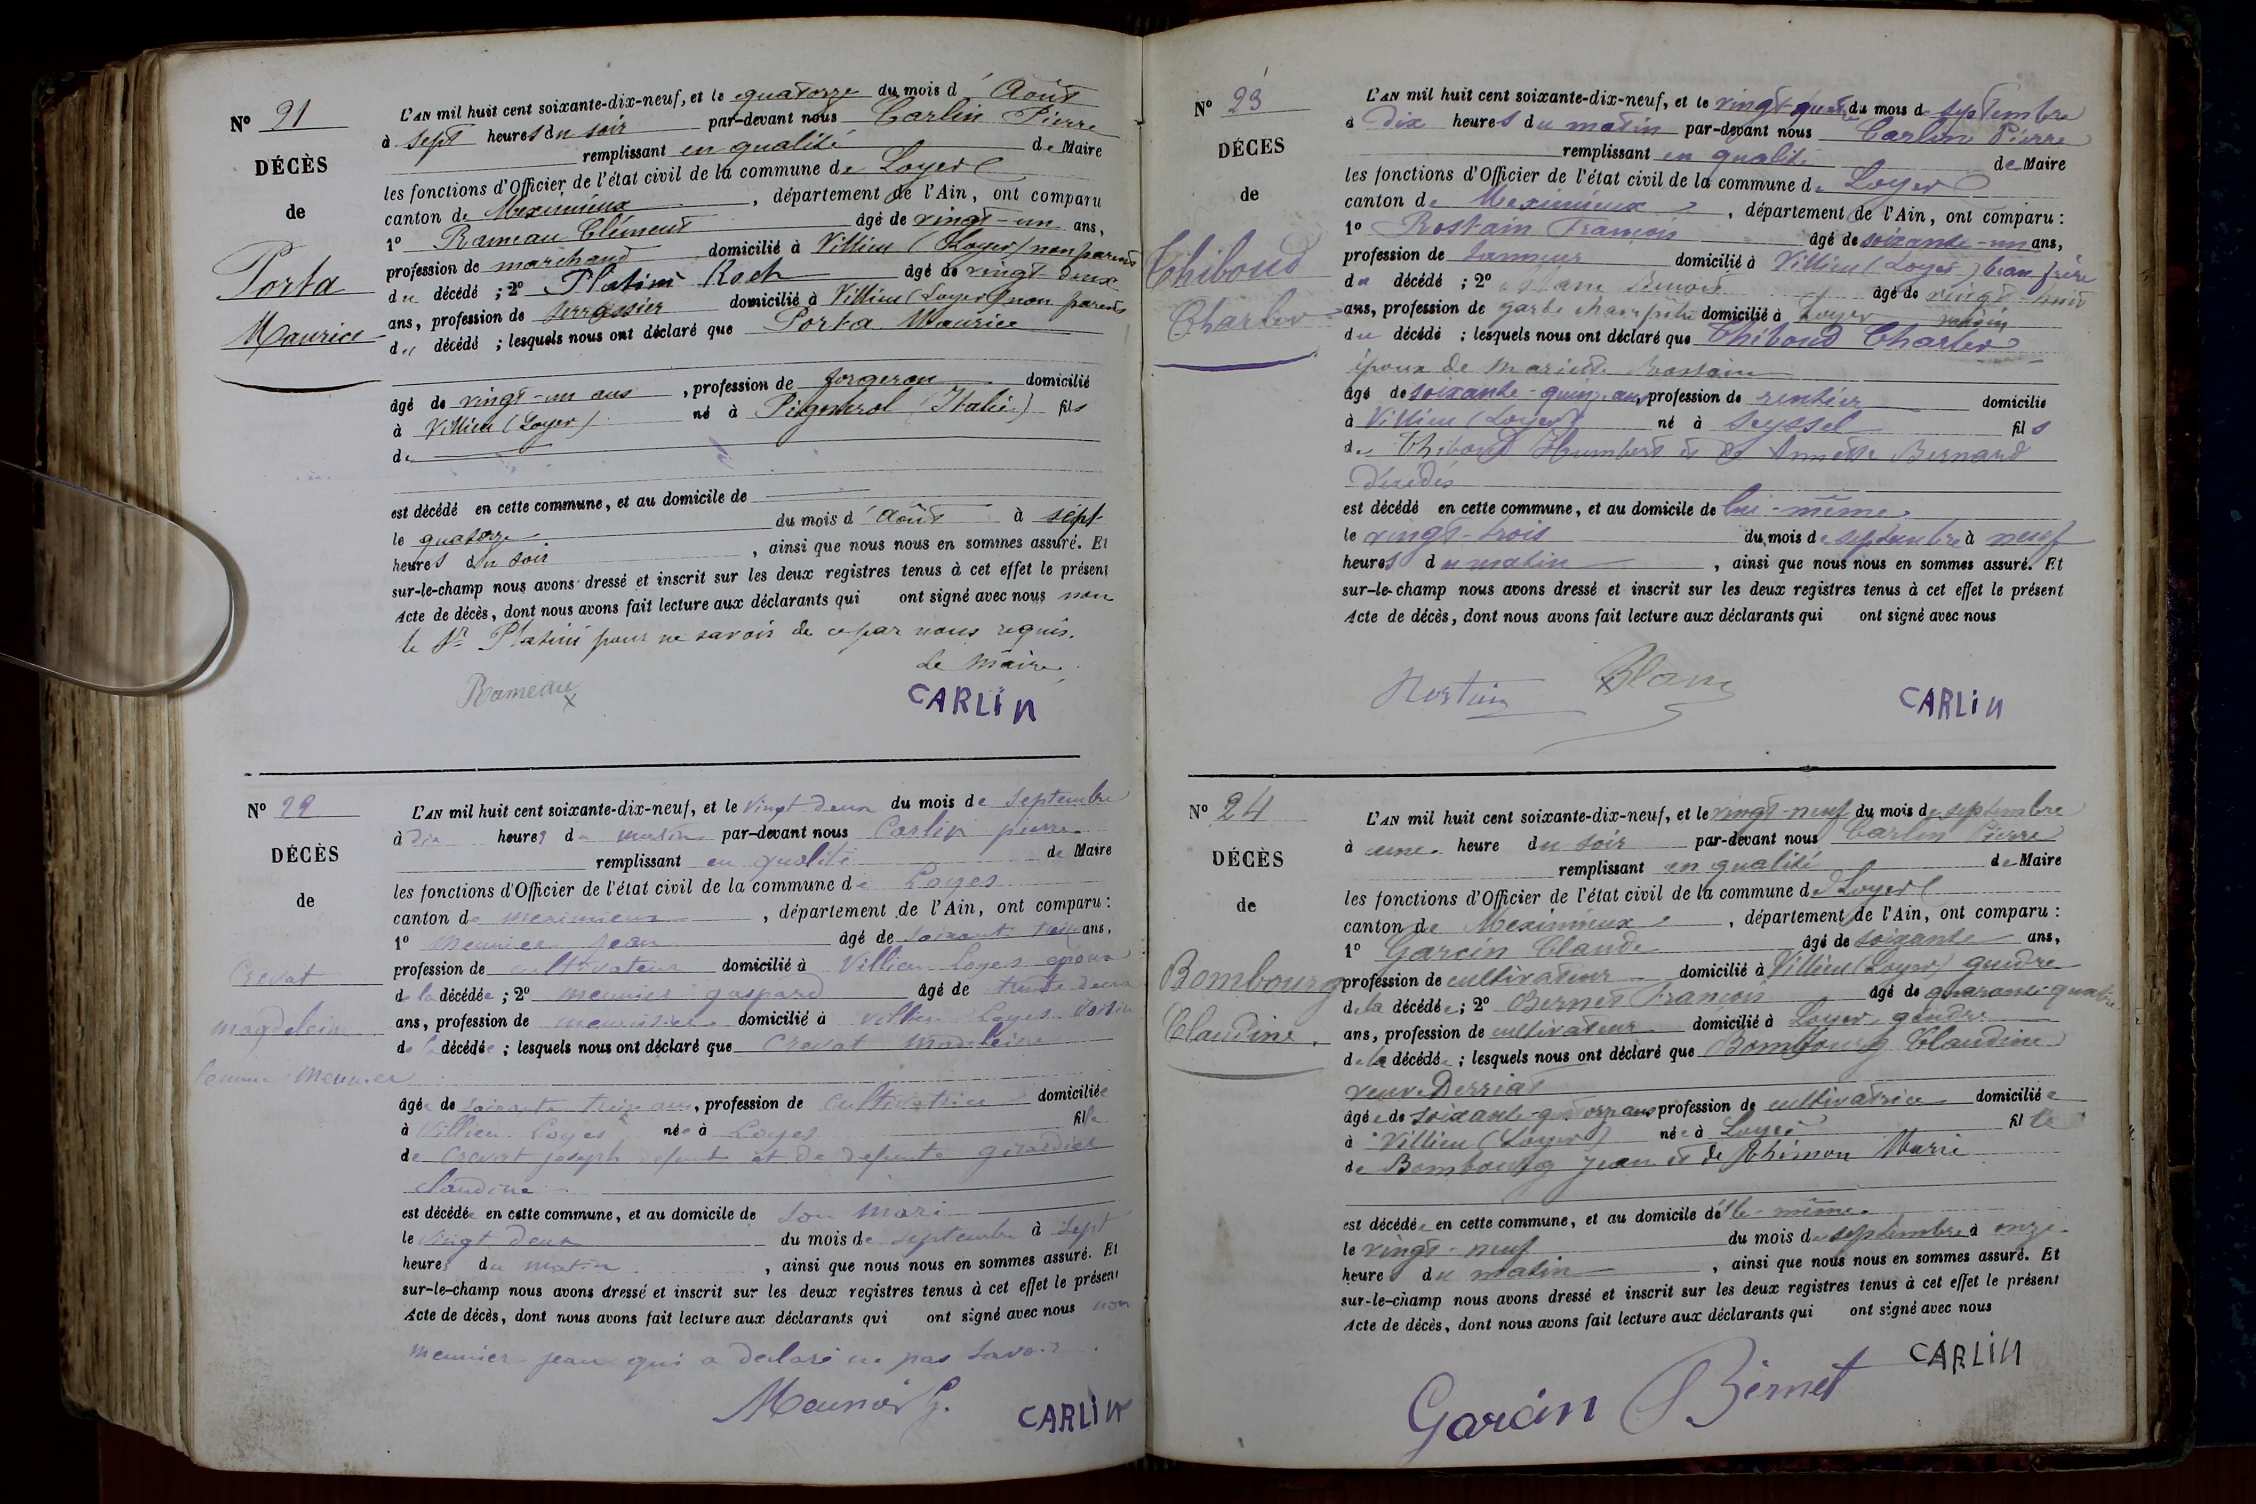 N° 21
DÉCÈS
de
Porta
Maurice
L'AN mil huit cent soixante-dix-neuf, et le quatorze du mois d'Août
à sept heures du soir par-devant nous Carlin Pierre
remplissant en qualité de Maire
les fonctions d'Officier de l'état civil de la commune de Loyes
canton de Meximieux, département de l'Ain, ont comparu
1° Rameau Clément âgé de vingt-un ans,
profession de marchand domicilié à Villieu (Loyes) non parents
du décédé ; 2° Platini Roch âgé de vingt deux
ans, profession de terrassier domicilié à Villieu (Loyes) non parents
du décédé ; lesquels nous ont déclaré que Porta Maurice
âgé de vingt-un ans, profession de forgeron domicilié
à Villieu (Loyes) né à Pignerol (Italie) fils
de
est décédé en cette commune, et au domicile de
le quatorze du mois d'Août à sept
heures du soir, ainsi que nous nous en sommes assuré. Et
sur-le-champ nous avons dressé et inscrit sur les deux registres tenus à cet effet le présent
Acte de décès, dont nous avons fait lecture aux déclarants qui ont signé avec nous non
le Sr Platini pour ne savoir de ce par nous requis.
Le Maire
Rameau
CARLIN
N° 22
DÉCÈS
de
Crevat
Magdeleine
femme Meunier
L'AN mil huit cent soixante-dix-neuf, et le vingt deux du mois de septembre
à dix heures du matin par-devant nous Carlin pierre
remplissant en qualité de Maire
les fonctions d'Officier de l'état civil de la commune de Loyes
canton de meximieux, département de l'Ain, ont comparu :
1° meunier jean âgé de soixante treize ans,
profession de cultivateur domicilié à Villieu Loyes epoux
de la décédée ; 2° meunier gaspard âgé de trente deux
ans, profession de menuisier domicilié à villieu Loyes
de la décédée ; lesquels nous ont déclaré que Crevat Madeleine
âgée de soixante treize ans, profession de cultivatrice domiciliée
à Villieu Loyes née à Loyes fille
de Crevat joseph defunt et de defunte girardier
claudine
est décédée en cette commune, et au domicile de son mari
le vingt deux du mois de septembre à sept
heures du matin, ainsi que nous nous en sommes assuré. Et
sur-le-champ nous avons dressé et inscrit sur les deux registres tenus à cet effet le présent
Acte de décès, dont nous avons fait lecture aux déclarants qui ont signé avec nous non
meunier jean qui a declaré ne pas savoir.
Meunier G.
CARLIN
N° 23
DÉCÈS
de
Thiboud
Charles
L'AN mil huit cent soixante-dix-neuf, et le vingt-quatre du mois de septembre
à dix heures du matin par-devant nous Carlin Pierre
remplissant en qualité de Maire
les fonctions d'Officier de l'état civil de la commune de Loyes
canton de Meximieux, département de l'Ain, ont comparu :
1° Rostain François âgé de soixante-un ans,
profession de tanneur domicilié à Villieu (Loyes) beau frère
du décédé ; 2° Blanc Benoit âgé de vingt-huit
ans, profession de garde champêtre domicilié à Loyes voisin
du décédé ; lesquels nous ont déclaré que Thiboud Charles
époux de Mariette Rostain
âgé de soixante-quinze ans, profession de rentier domicilié
à Villieu (Loyes) né à Seyssel fils
de Thiboud Humbert et de Annette Bernard
décédés
est décédé en cette commune, et au domicile de lui-même
le vingt-trois du mois de septembre à neuf
heures du matin, ainsi que nous nous en sommes assuré. Et
sur-le-champ nous avons dressé et inscrit sur les deux registres tenus à cet effet le présent
Acte de décès, dont nous avons fait lecture aux déclarants qui ont signé avec nous
Rostain
Blanc
CARLIN
N° 24
DÉCÈS
de
Bombourg
Claudine
L'AN mil huit cent soixante-dix-neuf, et le vingt-neuf du mois de septembre
à une heure du soir par-devant nous Carlin Pierre
remplissant en qualité de Maire
les fonctions d'Officier de l'état civil de la commune de Loyes
canton de Meximieux, département de l'Ain, ont comparu :
1° Garcin Claude âgé de soixante ans,
profession de cultivateur domicilié à Villieu (Loyes) gendre
de la décédée ; 2° Bernet François âgé de quarante-quatre
ans, profession de cultivateur domicilié à Loyes, gendre
de la décédée ; lesquels nous ont déclaré que Bombourg Claudine
veuve Derrias
âgée de soixante-quatorze ans profession de cultivatrice domiciliée
à Villieu (Loyes) née à Loyes fille
de Bombourg Jean et de Thimon Marie
est décédée en cette commune, et au domicile d'elle-même
le vingt-neuf du mois de septembre à onze
heures du matin, ainsi que nous nous en sommes assuré. Et
sur-le-champ nous avons dressé et inscrit sur les deux registres tenus à cet effet le présent
Acte de décès, dont nous avons fait lecture aux déclarants qui ont signé avec nous
Garcin
Bernet
CARLIN